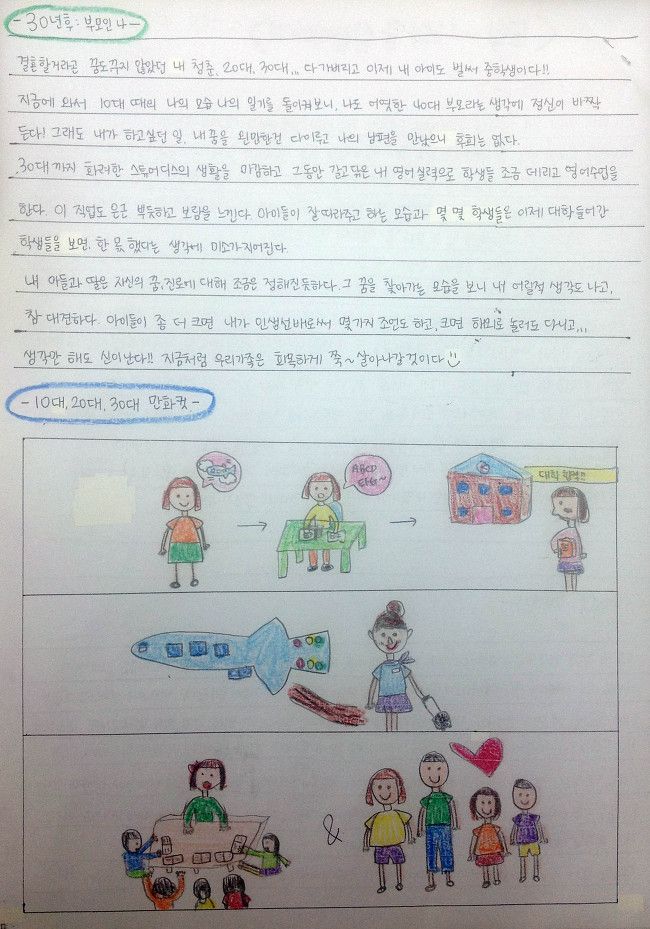 - 30년후 : 부모인 나 -
결혼할거라곤 꿈도꾸지 않았던 내 청춘, 20대, 30대... 다 가버리고 이제 내 아이도 벌써 중학생이다!!
지금에 와서 10대 때의 나의 모습 나의 일기를 돌이켜보니, 나도 어엿한 40대 부모라는 생각에 정신이 바짝
든다! 그래도 내가 하고싶던 일, 내 꿈을 원만한건 다이루고 나의 남편을 만났으니 후회는 없다.
30대 까지 화려한 스튜어디스의 생활을 마감하고 그동안 갈고닦은 내 영어실력으로 학생들 조금 데리고 영어수업을
한다. 이 직업도 은근 뿌듯하고 보람을 느낀다. 아이들이 잘 따라주고 하는 모습과 몇 몇 학생들은 이제 대학 들어간
학생들을 보면, 한 몫 했다는 생각에 미소가 지어진다.
내 아들과 딸은 자신의 꿈, 진로에 대해 조금은 정해진듯하다. 그 꿈을 찾아가는 모습을 보니 내 어릴적 생각도 나고,
참 대견하다. 아이들이 좀 더 크면 내가 인생선배로써 몇가지 조언도 하고, 크면 해외로 놀러도 다니고,...
생각만 해도 신이난다!! 지금처럼 우리가족은 화목하게 쭉~ 살아나갈것이다
- 10대, 20대, 30대 만화컷 -
ABCD
EFG~
대학 합격!!
&